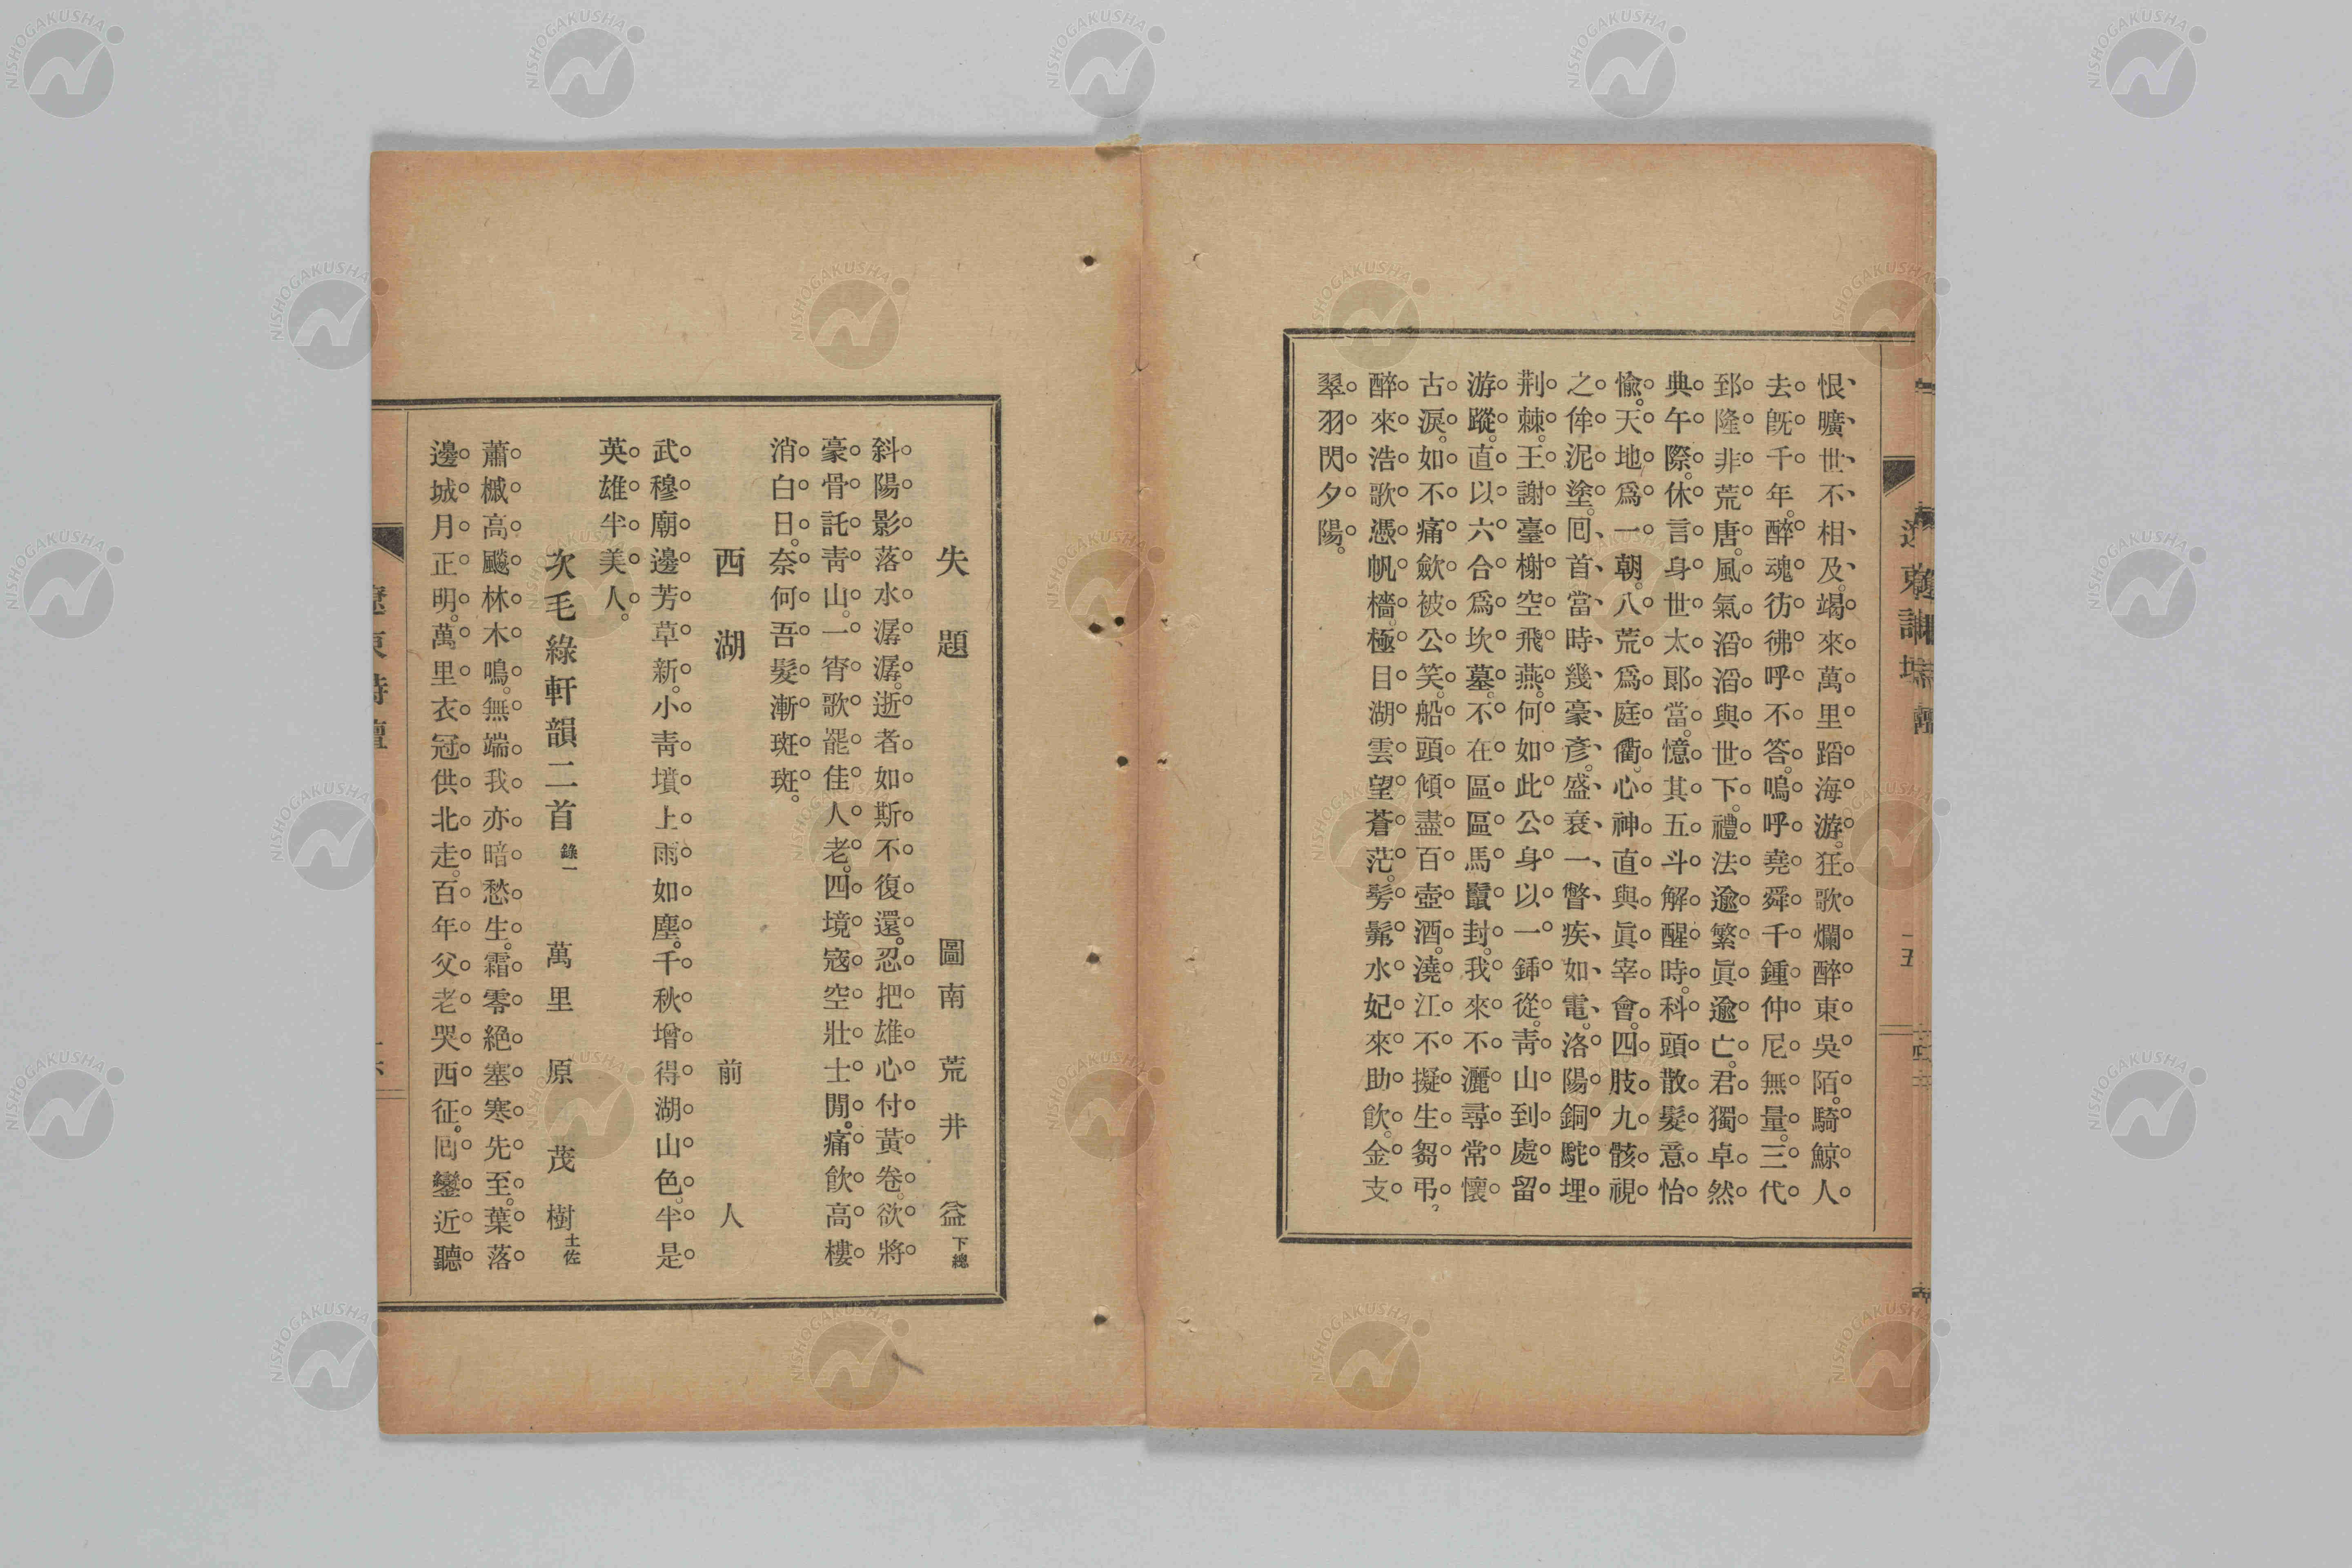 恨曠世不相及。竭來萬里蹈海游。狂歌爛醉東吳陌。騎鯨人
去既千年。醉魂彷彿呼不答。嗚呼堯舜千鍾仲尼無量。三代
郅隆非荒唐。風氣滔滔與世下。禮法逾繁眞逾亡。君獨卓然
典午際。休言身世太郞當。憶其五斗解醒時。科頭散髮意怡
愉。天地爲一朝。八荒爲庭衢。心神直與眞宰會。四肢九骸視
之侔泥塗。囘首當時幾豪彥。盛衰一瞥疾如電。洛陽銅駝埋
荆棘。王謝臺榭空飛燕。何如此公身以一鍤從。靑山到處留
游蹤。直以六合爲坎墓。不在區區馬鬣封。我來不灑尋常懷
古淚。如不痛飮被公笑。船頭傾盡百壺酒。澆江不擬生芻弔。
醉來浩歌憑帆檣。極目湖雲望蒼茫。髣髴水妃來助飮。金支
翠羽閃夕陽。
失題 圖南 荒井 益 下總
斜陽影落水潺潺。逝者如斯不復還。忍把雄心付黃卷。欲將
豪骨託靑山。一宵歌罷佳人老。四境寇空壯士閒。痛飮高樓
消白日。奈何吾髮漸斑斑。
西湖 前人
武穆廟邊芳草新。小靑墳上雨如塵。千秋增得湖山色。半是
英雄半美人。
次毛綠軒韻二首 錄一 萬里 原 茂樹 土佐
蕭槭高飈林木鳴。無端我亦暗愁生。霜零絕塞寒先至。葉落
邊城月正明。萬里衣冠供北走。百年父老哭西征。囘鑾近聽